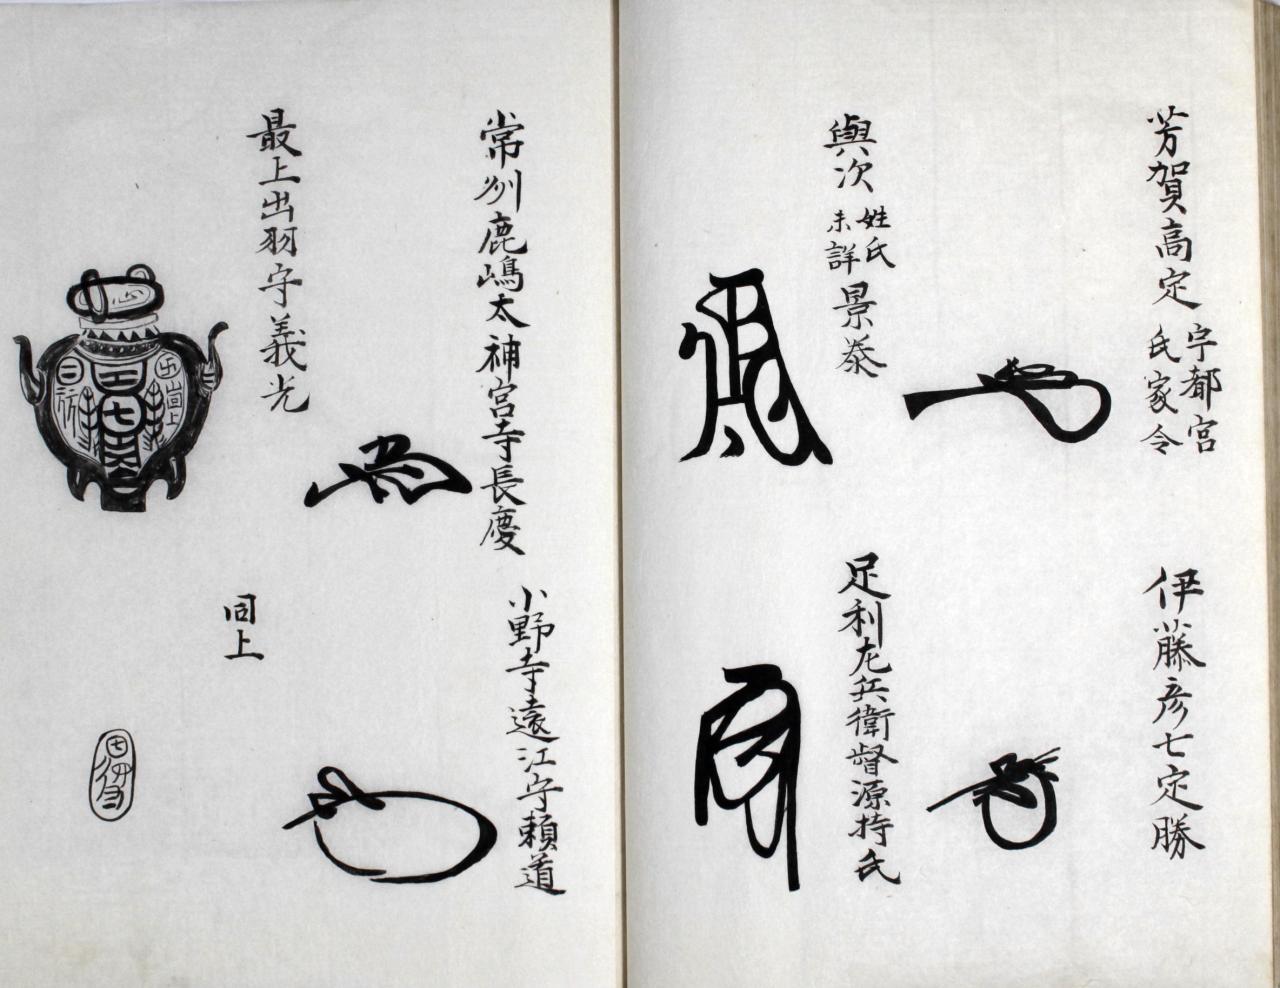 芳賀高定 宇都宮
氏家令
伊藤彦七定勝
與次 姓氏
未詳 景泰
足利左兵衛督源持氏
常州鹿嶋太神宮寺長慶
小野寺遠江守頼道
最上出羽守義光
同上